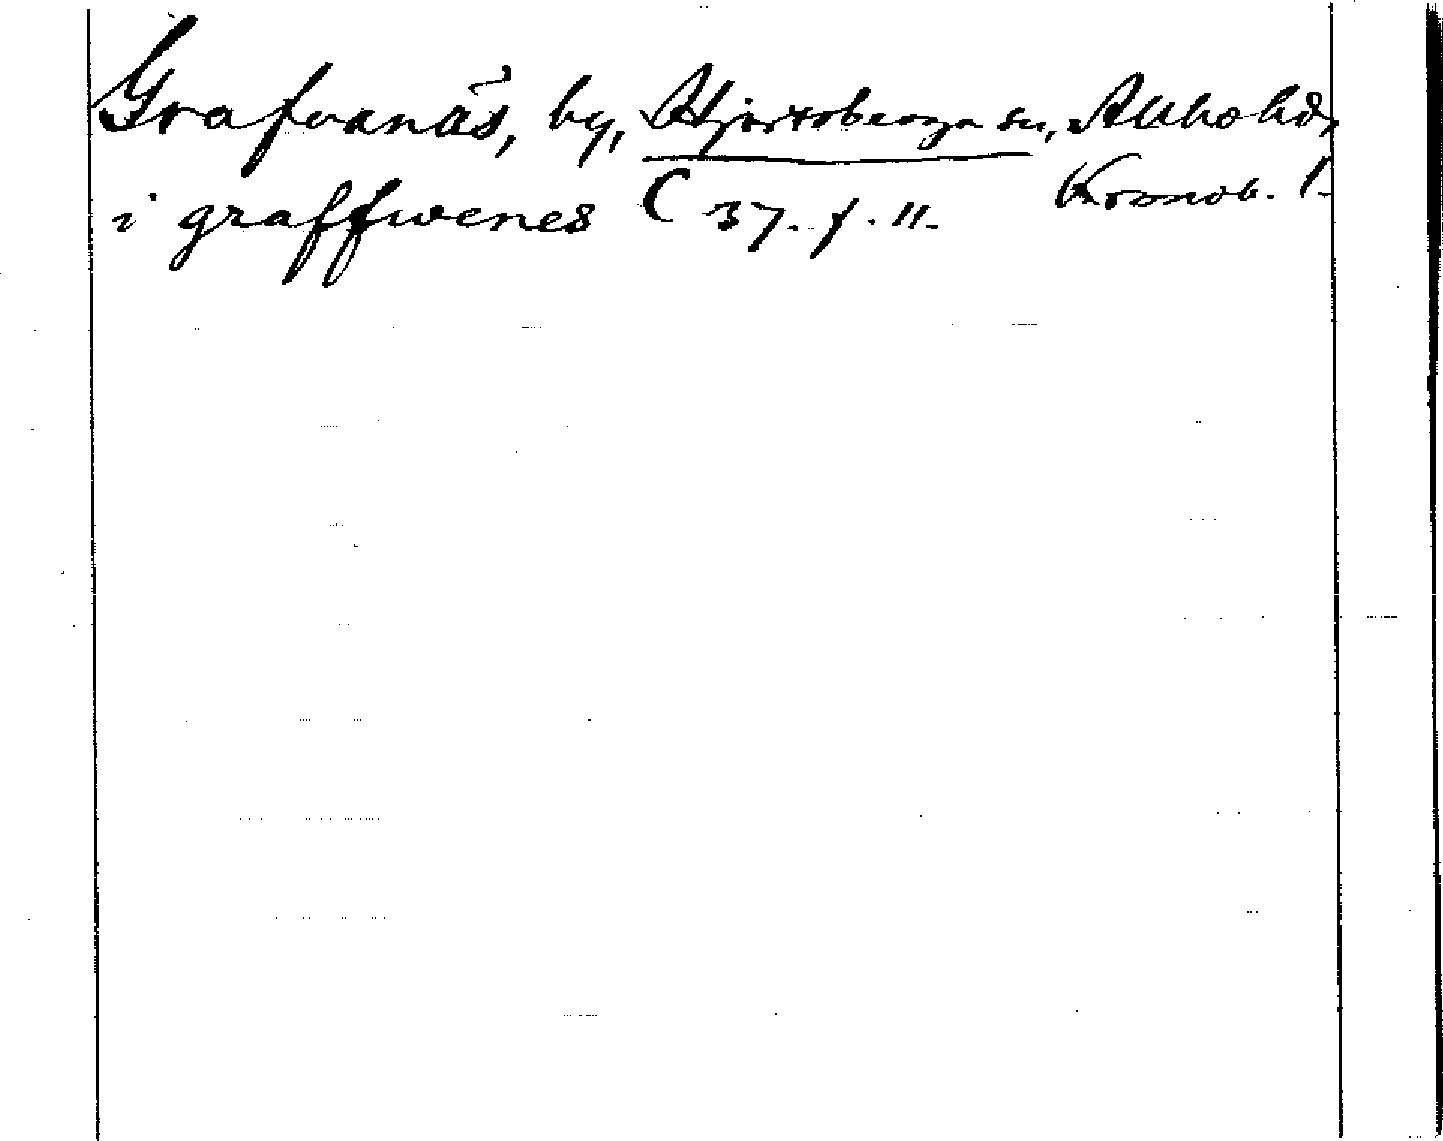 Grafvanäs, by, Hjortsberga sn, Allbo hd,
Kronob. l.
i graffwenes C 37. f. 11.